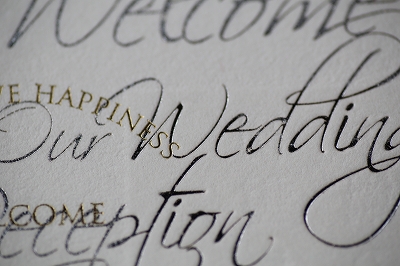 Welcome
HAPPINESS
Our Wedding
COME
Reception